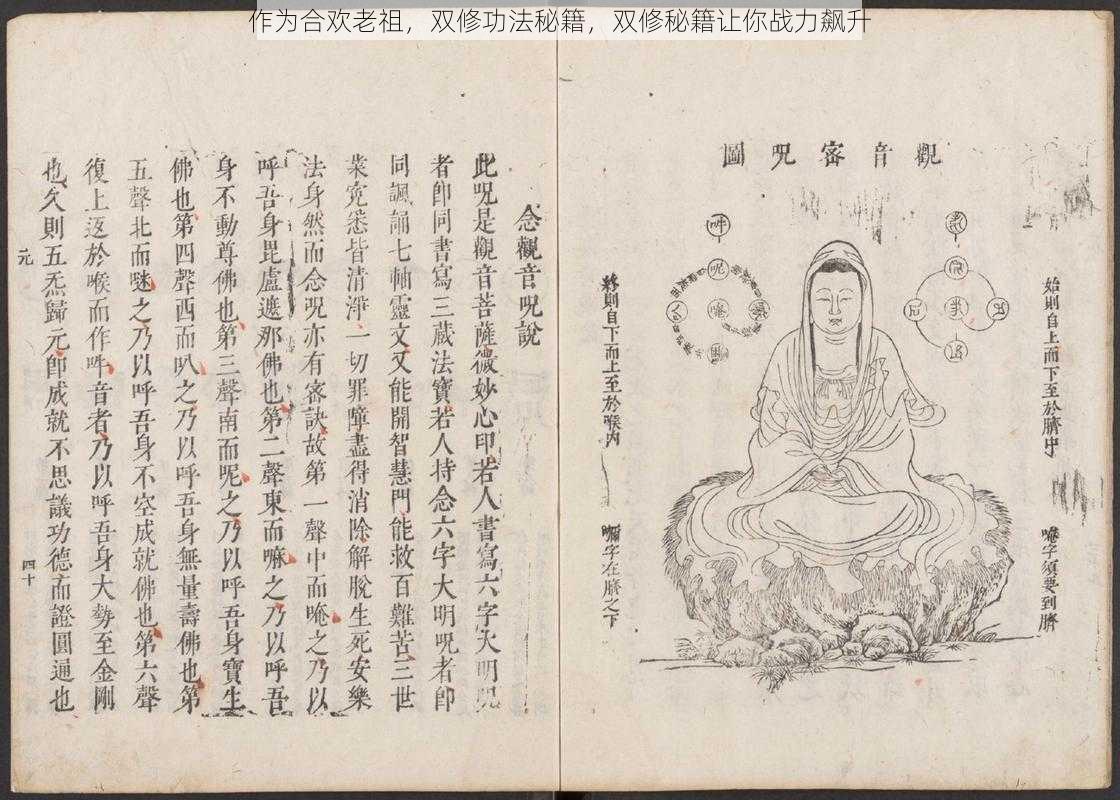 作为合欢老祖，双修功法秘籍，双修秘籍让你战力飙升
觀音密呪圖
始則自上而下至於臍中
唵字須要到臍
終則自下而上至於喉內
嘛字在臍之下
吽
呢
唵
念觀音呪說
此呪是觀音菩薩微妙心印若人書寫六字大明呪
者卽同書寫三藏法寶若人持念六字大明呪者卽
同諷誦七軸靈文又能開智慧門能救百難苦三世
業寃悉皆清淨一切罪障盡得消除解脫生死安樂
法身然而念呪亦有密訣故第一聲中而唵之乃以
呼吾身毘盧遮那佛也第二聲東而嘛之乃以呼吾
身不動尊佛也第三聲南而呢之乃以呼吾身寶生
佛也第四聲西而叭之乃以呼吾身無量壽佛也第
五聲北而𠺗之乃以呼吾身不空成就佛也第六聲
復上返於喉而作吽音者乃以呼吾身大勢至金剛
也久則五炁歸元卽成就不思議功德而證圓通也
元
四十